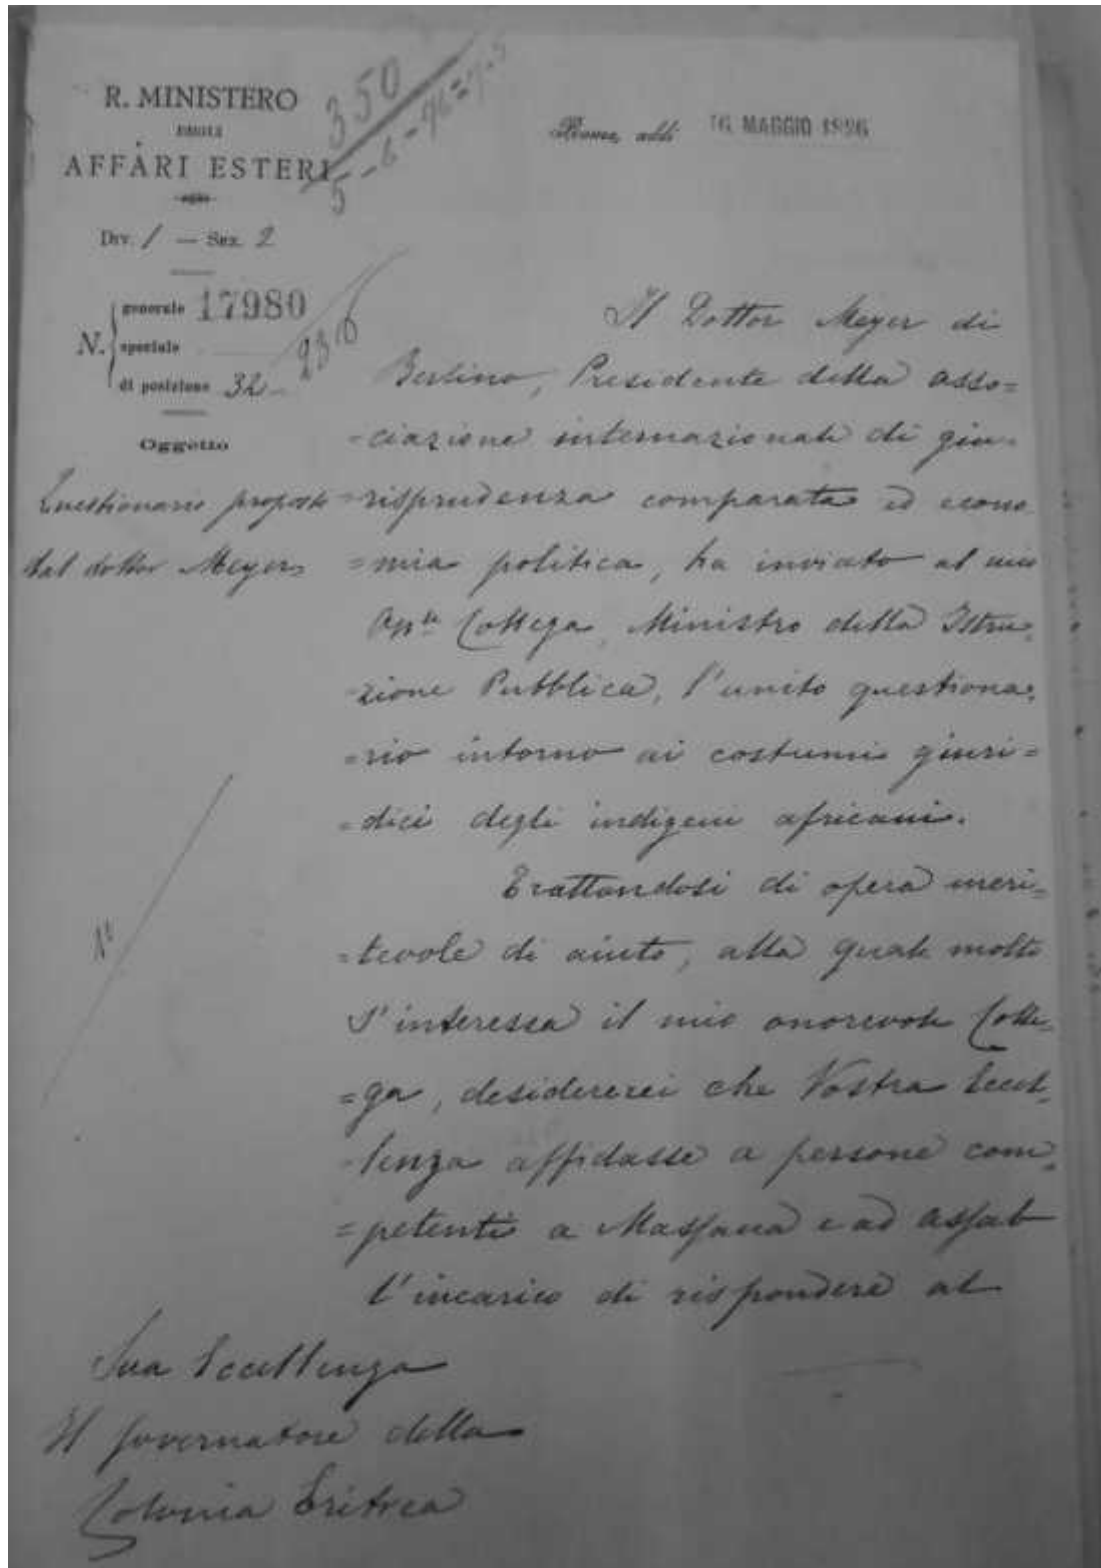 R. MINISTERO
DEGLI
AFFARI ESTERI
350
5-6-96
Roma, addì 16 MAGGIO 1896
Div. 1 — Sez. 2
N.
generale 17980
speciale
di posizione 32
Oggetto
Questionario proposto
dal dottor Meyer
Il Dottor Meyer di
Berlino, Presidente della asso=
=ciazione internazionale di giu=
=risprudenza comparata ed econo
=mia politica, ha inviato al mio
On.le Collega, Ministro della Istru=
zione Pubblica, l'unito questiona=
=rio intorno ai costumi giuri=
=dici degli indigeni africani.
Trattandosi di opera meri=
=tevole di aiuto, alla quale molto
s'interessa il mio onorevole Colle=
=ga, desidererei che Vostra Eccel=
lenza affidasse a persone com=
=petenti a Massaua e ad Assab
l'incarico di rispondere al
Sua Eccellenza
Il Governatore della
Colonia Eritrea